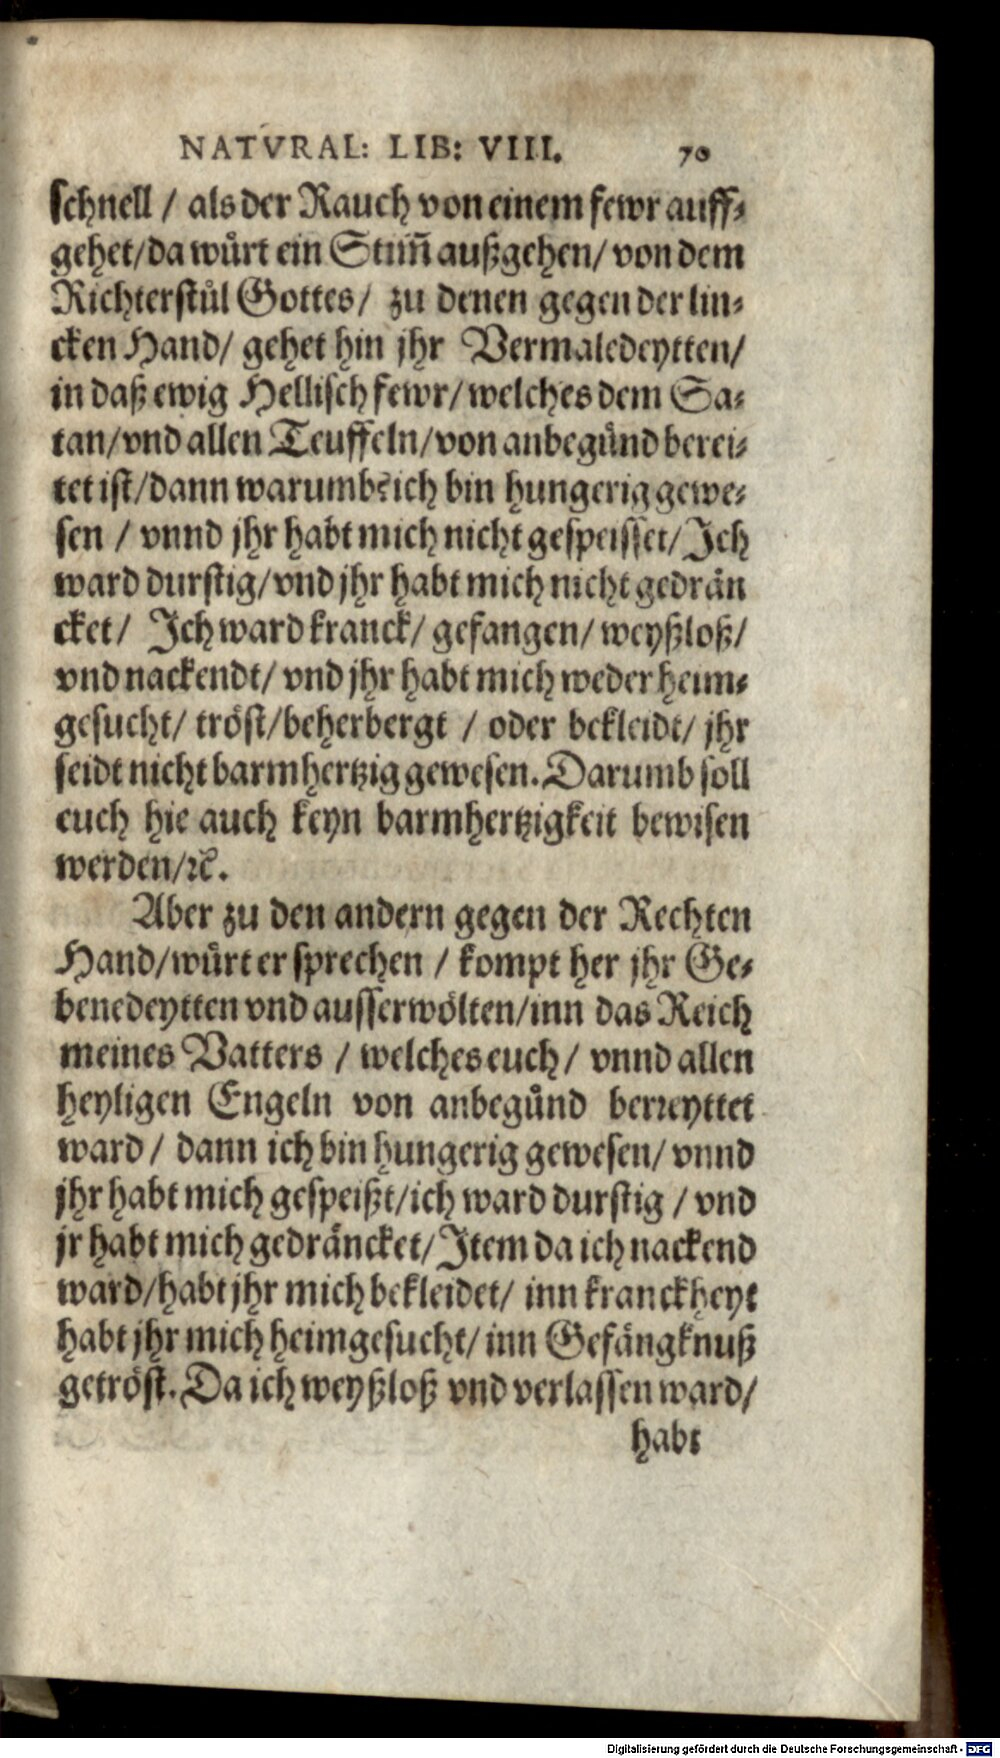 NATVRAL: LIB: VIII. 70
schnell / als der Rauch von einem fewr auff-
gehet/da wuͤrt ein Stim̃ außgehen/ von dem
Richterstuͤl Gottes/ zu denen gegen der lin-
cken Hand/ gehet hin jhr Vermaledeytten/
in daß ewig Hellisch fewr/welches dem Sa-
tan/vnd allen Teuffeln/von anbeguͤnd berei-
tet ist/dann warumb? ich bin hungerig gewe-
sen / vnnd jhr habt mich nicht gespeisset/Ich
ward durstig/vnd jhr habt mich nicht gedraͤn
cket/ Ich ward kranck/ gefangen/ weyßloß/
vnd nackendt/ vnd jhr habt mich weder heim-
gesucht/ troͤst/beherbergt / oder bekleidt/ jhr
seidt nicht barmhertzig gewesen. Darumb soll
euch hie auch keyn barmhertzigkeit bewisen
werden/ꝛc̃.
Aber zu den andern gegen der Rechten
Hand/wuͤrt er sprechen / kompt her jhr Ge-
benedeytten vnd ausserwoͤlten/inn das Reich
meines Vatters / welches euch/ vnnd allen
heyligen Engeln von anbeguͤnd berreyttet
ward/ dann ich bin hungerig gewesen/ vnnd
jhr habt mich gespeißt/ich ward durstig / vnd
jr habt mich gedraͤncket/Item da ich nackend
ward/habt jhr mich bekleidet/ inn kranckheyt
habt jhr mich heimgesucht/inn Gefaͤngknuß
getroͤst. Da ich weyßloß vnd verlassen ward/
habt
Digitalisierung gefördert durch die Deutsche Forschungsgemeinschaft - DFG